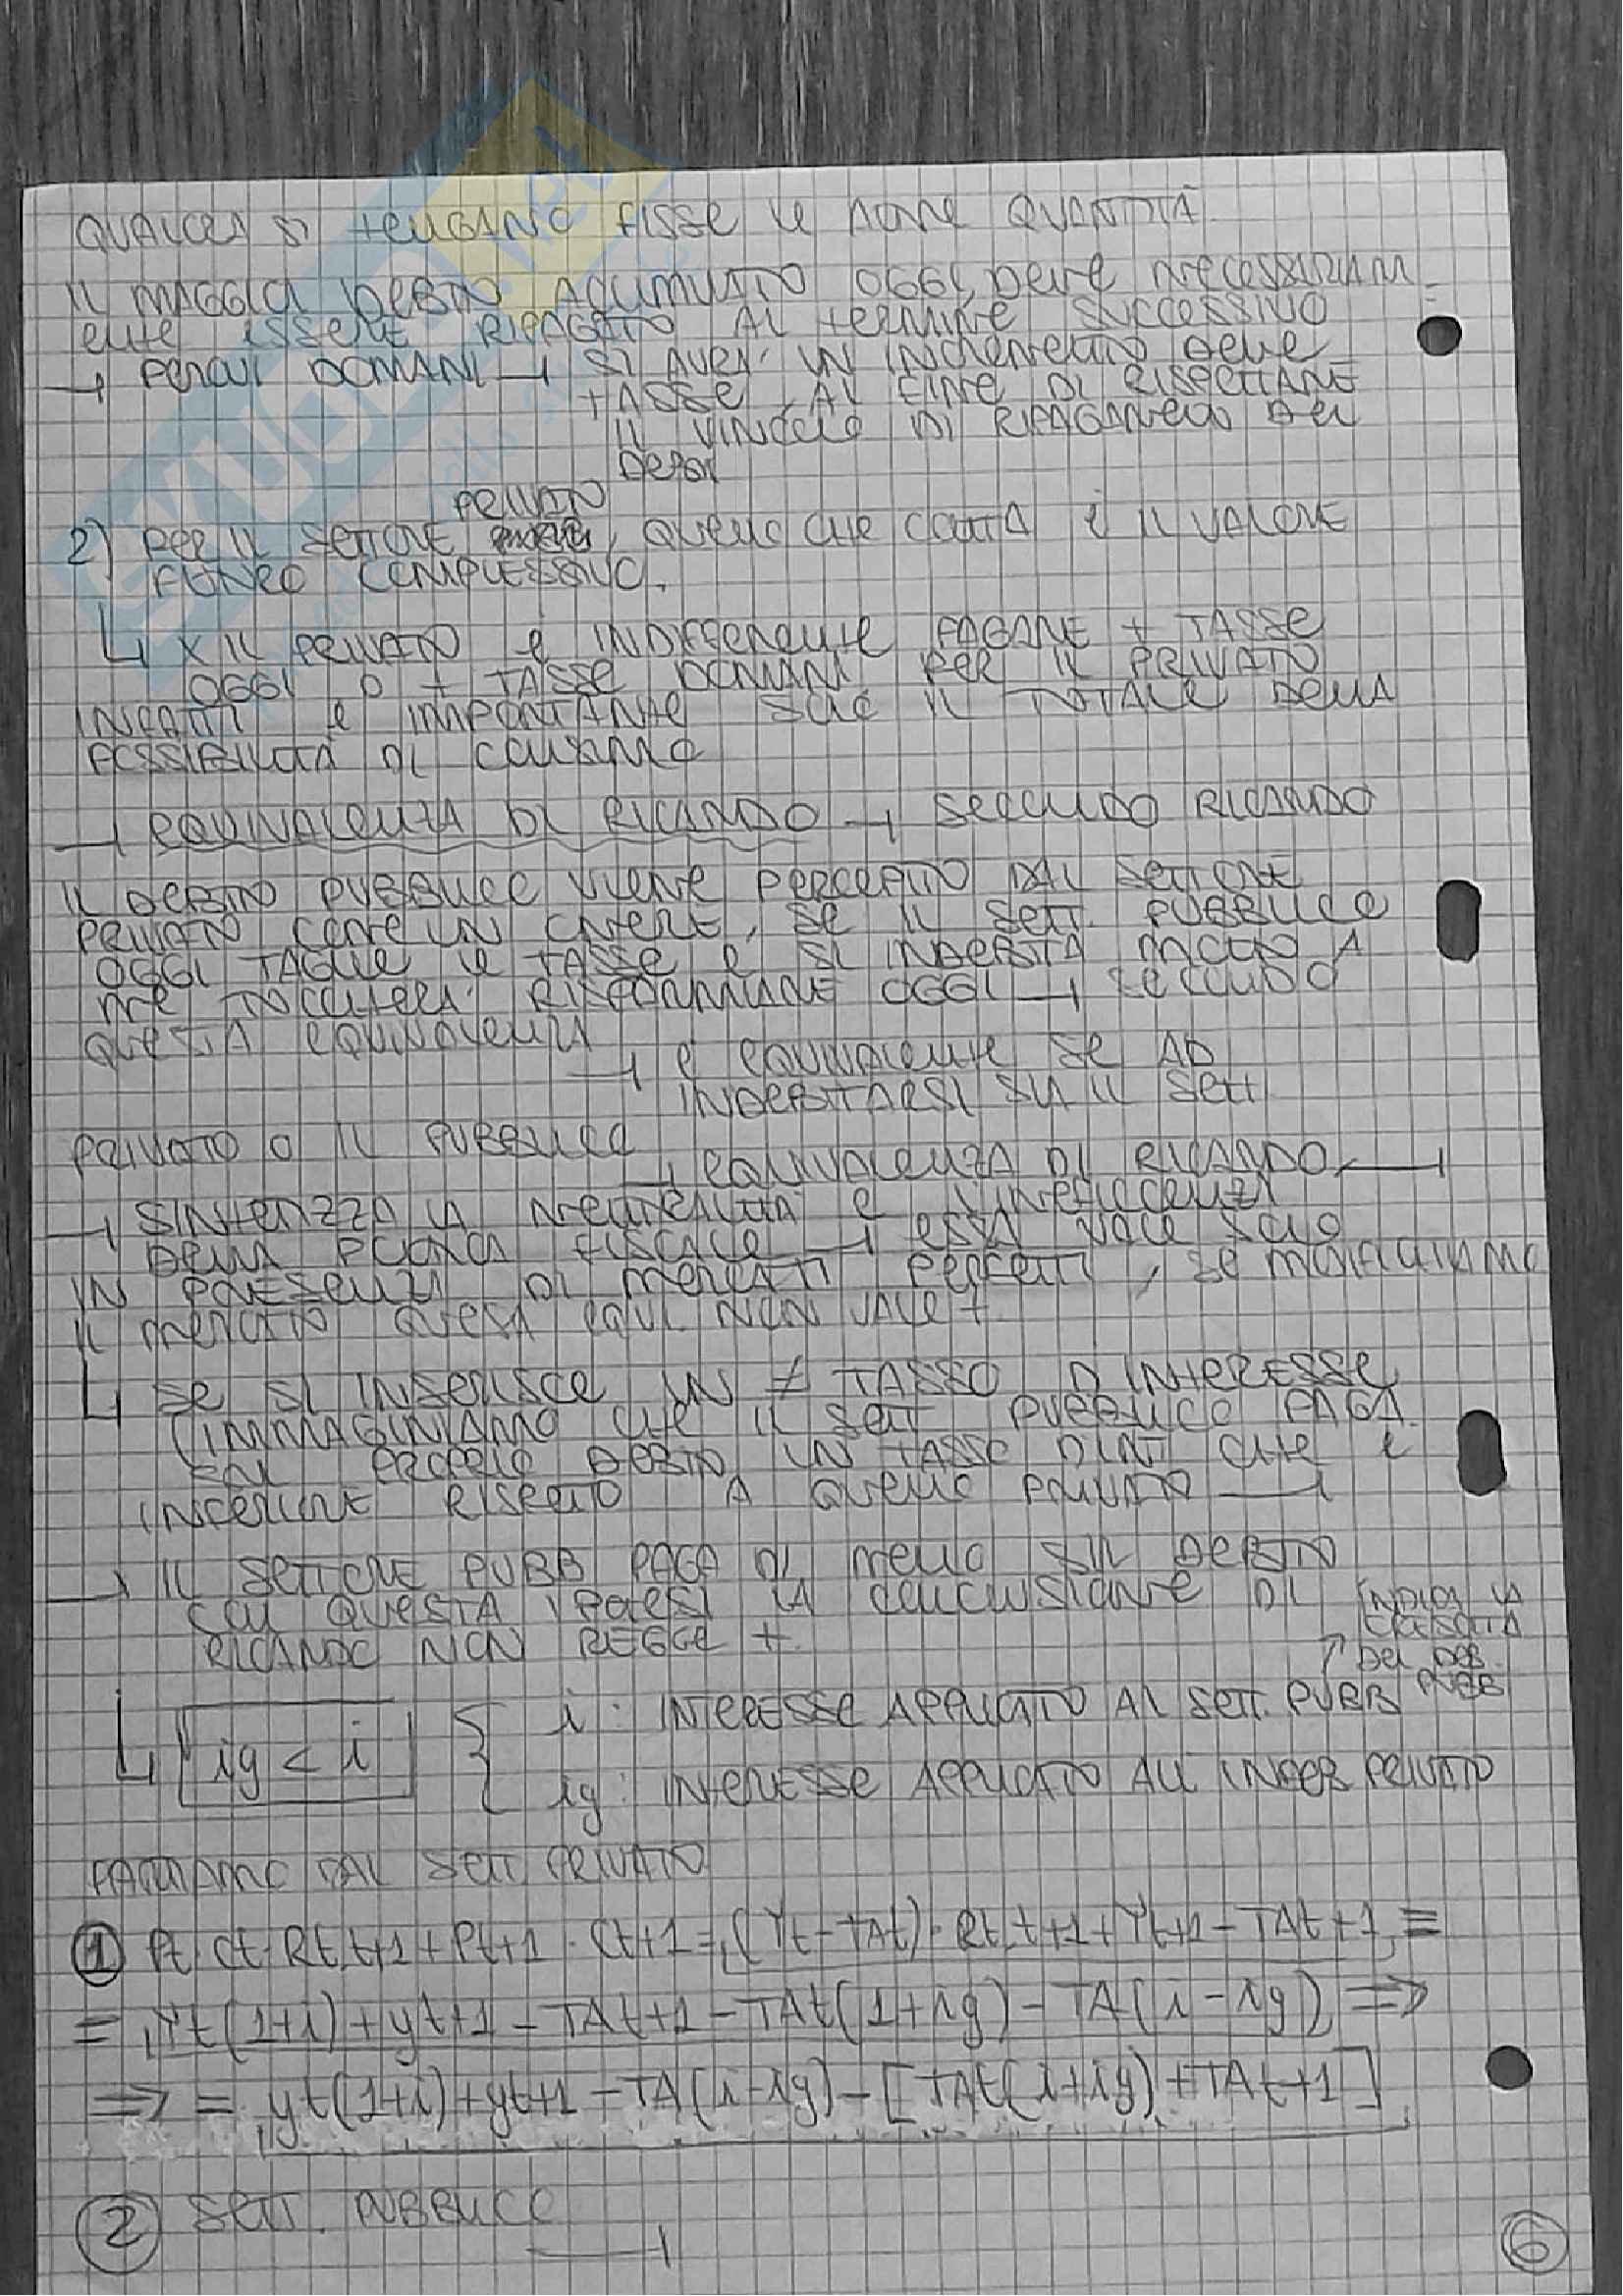 QUALORA SI TENGANO FISSE LE ALTRE QUANTITÀ
IL MAGGIOR DEBITO ACUMULATO OGGI, DEVE NECESSARIAM-
ENTE ESSERE RIPAGATO AL TERMINE SUCCESSIVO
→ PERCUI DOMANI → SI AVRA' UN INCREMENTO DELLE
TASSE, AL FINE DI RISPETTARE
IL VINCOLO DI RIPAGAMENTO DEL
DEBITO
PRIVATO
2) PER IL SETTORE, QUELLO CHE CONTA È IL VALORE
COMPLESSIVO.
↳ X IL PRIVATO È INDIFFERENTE PAGARE + TASSE
OGGI O + TASSE DOMANI PER IL PRIVATO
INFATTI È IMPORTANTE SOLO IL TOTALE DELLA
POSSIBILITÀ DI CONSUMO
→ EQUIVALENZA DI RICARDO → SECONDO RICARDO
IL DEBITO PUBBLICO VIENE PERCEPITO DAL SETTORE
PRIVATO COME UN ONERE, SE IL SETT. PUBBLICO
OGGI TAGLIE LE TASSE E SI INDEBITA MOLTO A
ME TOCCHERA' RISPARMIARE OGGI → SECONDO
QUESTA EQUIVALENZA
→ È EQUIVALENTE SE AD
INDEBITARSI SIA IL SETT
PRIVATO O IL PUBBLICO
→ EQUIVALENZA DI RICARDO →
→ SINTETIZZA LA NEUTRALITÀ E L'INEFFICIENZA
DELLA POLITICA FISCALE → ESSA VALE SOLO
IN PRESENZA DI MERCATI PERFETTI, SE MODIFICHIAMO
IL MERCATO QUESTA EQUI. NON VALE +
↳ SE SI INSERISCE UN ≠ TASSO D'INTERESSE
(IMMAGINIAMO CHE IL SETT PUBBLICO PAGA
SUL PROPRIO DEBITO UN TASSO D'INT CHE È
INFERIORE RISPETTO A QUELLO PRIVATO →
→ IL SETTORE PUBB PAGA DI MENO SUL DEBITO
CON QUESTA IPOTESI LA CONCLUSIONE DI
RICARDO NON REGGE +
↗ INDICA LA
CRESCITA
DEL DEB.
PUBB
↳ ig < i { i : INTERESSE APPLICATO AL SETT. PUBB
ig : INTERESSE APPLICATO ALL' INDEB PRIVATO
PARTIAMO DAL SETT PRIVATO
① Pt · Ct · Rt,t+1 + Pt+1 · Ct+1 = (Yt - TAt) · Rt,t+1 + Yt+1 - TAt+1 =
= Yt(1+i) + yt+1 - TAt+1 - TAt(1+ig) - TA(i - ig) ⇒
⇒ = yt(1+i) + yt+1 - TA(i - ig) - [TAt(i+ig) + TAt+1]
② SETT. PUBBLICO →
⑥